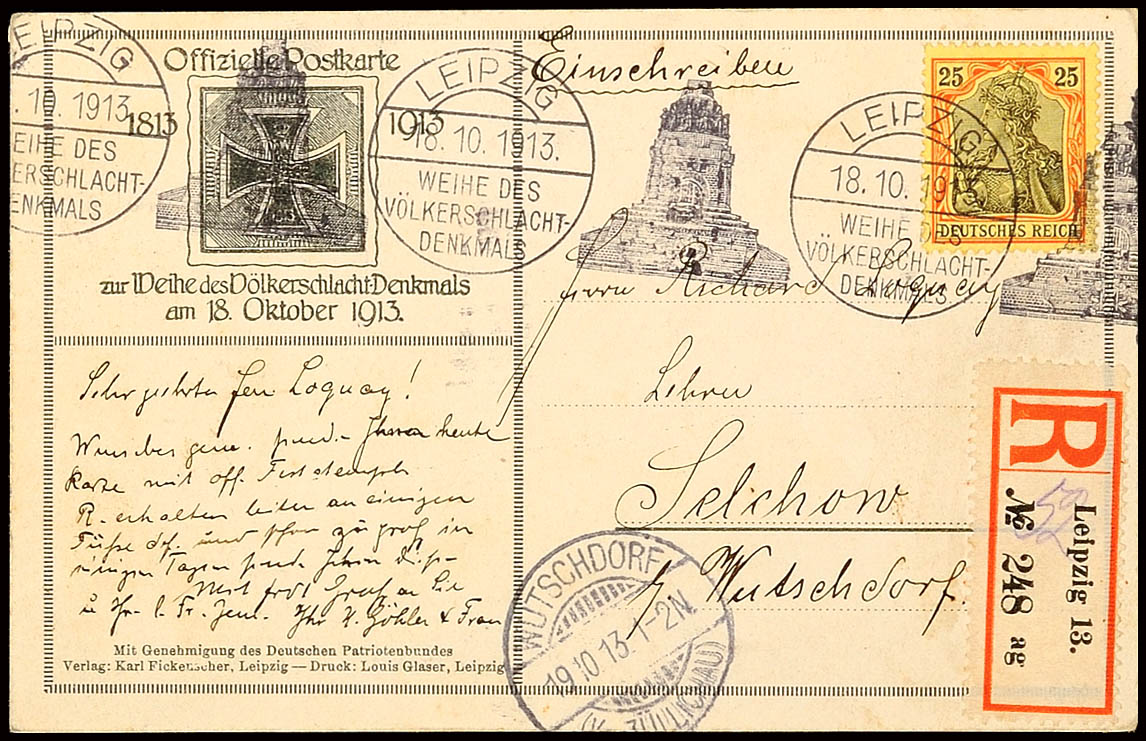 LEIPZIG
18.10.1913.
WEIHE DES
VÖLKERSCHLACHT-
DENKMALS
Offizielle Postkarte
1813
1913
zur Weihe des Völkerschlacht-Denkmals
am 18. Oktober 1913.
LEIPZIG
18.10.1913.
WEIHE DES
VÖLKERSCHLACHT-
DENKMALS
Einschreiben
LEIPZIG
18.10.1913
WEIHE DES
VÖLKERSCHLACHT-
DENKMALS
25 25
DEUTSCHES REICH
Herrn Richard Loquay
Lehrer
Selchow
b/ Wutschdorf.
Loquay!
Ihren heute
Karte mit off. Feststempel
R. erhalten leider an einigen
und schon zu groß in
einigen Tagen
Mit frdl Gruß an Sie
u Ihr Ihr H. Göhler & Frau
Mit Genehmigung des Deutschen Patriotenbundes
Verlag: Karl Fickenscher, Leipzig — Druck: Louis Glaser, Leipzig
WUTSCHDORF
19.10.13.1-2N
R
Leipzig 13.
№ 248 ag